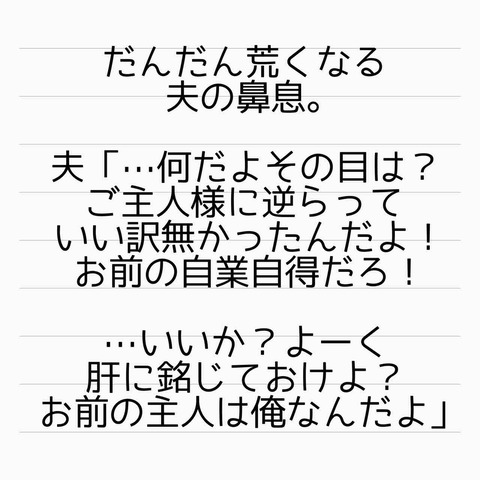 だんだん荒くなる
夫の鼻息。
夫「…何だよその目は？
ご主人様に逆らって
いい訳無かったんだよ！
お前の自業自得だろ！
…いいか？よーく
肝に銘じておけよ？
お前の主人は俺なんだよ」